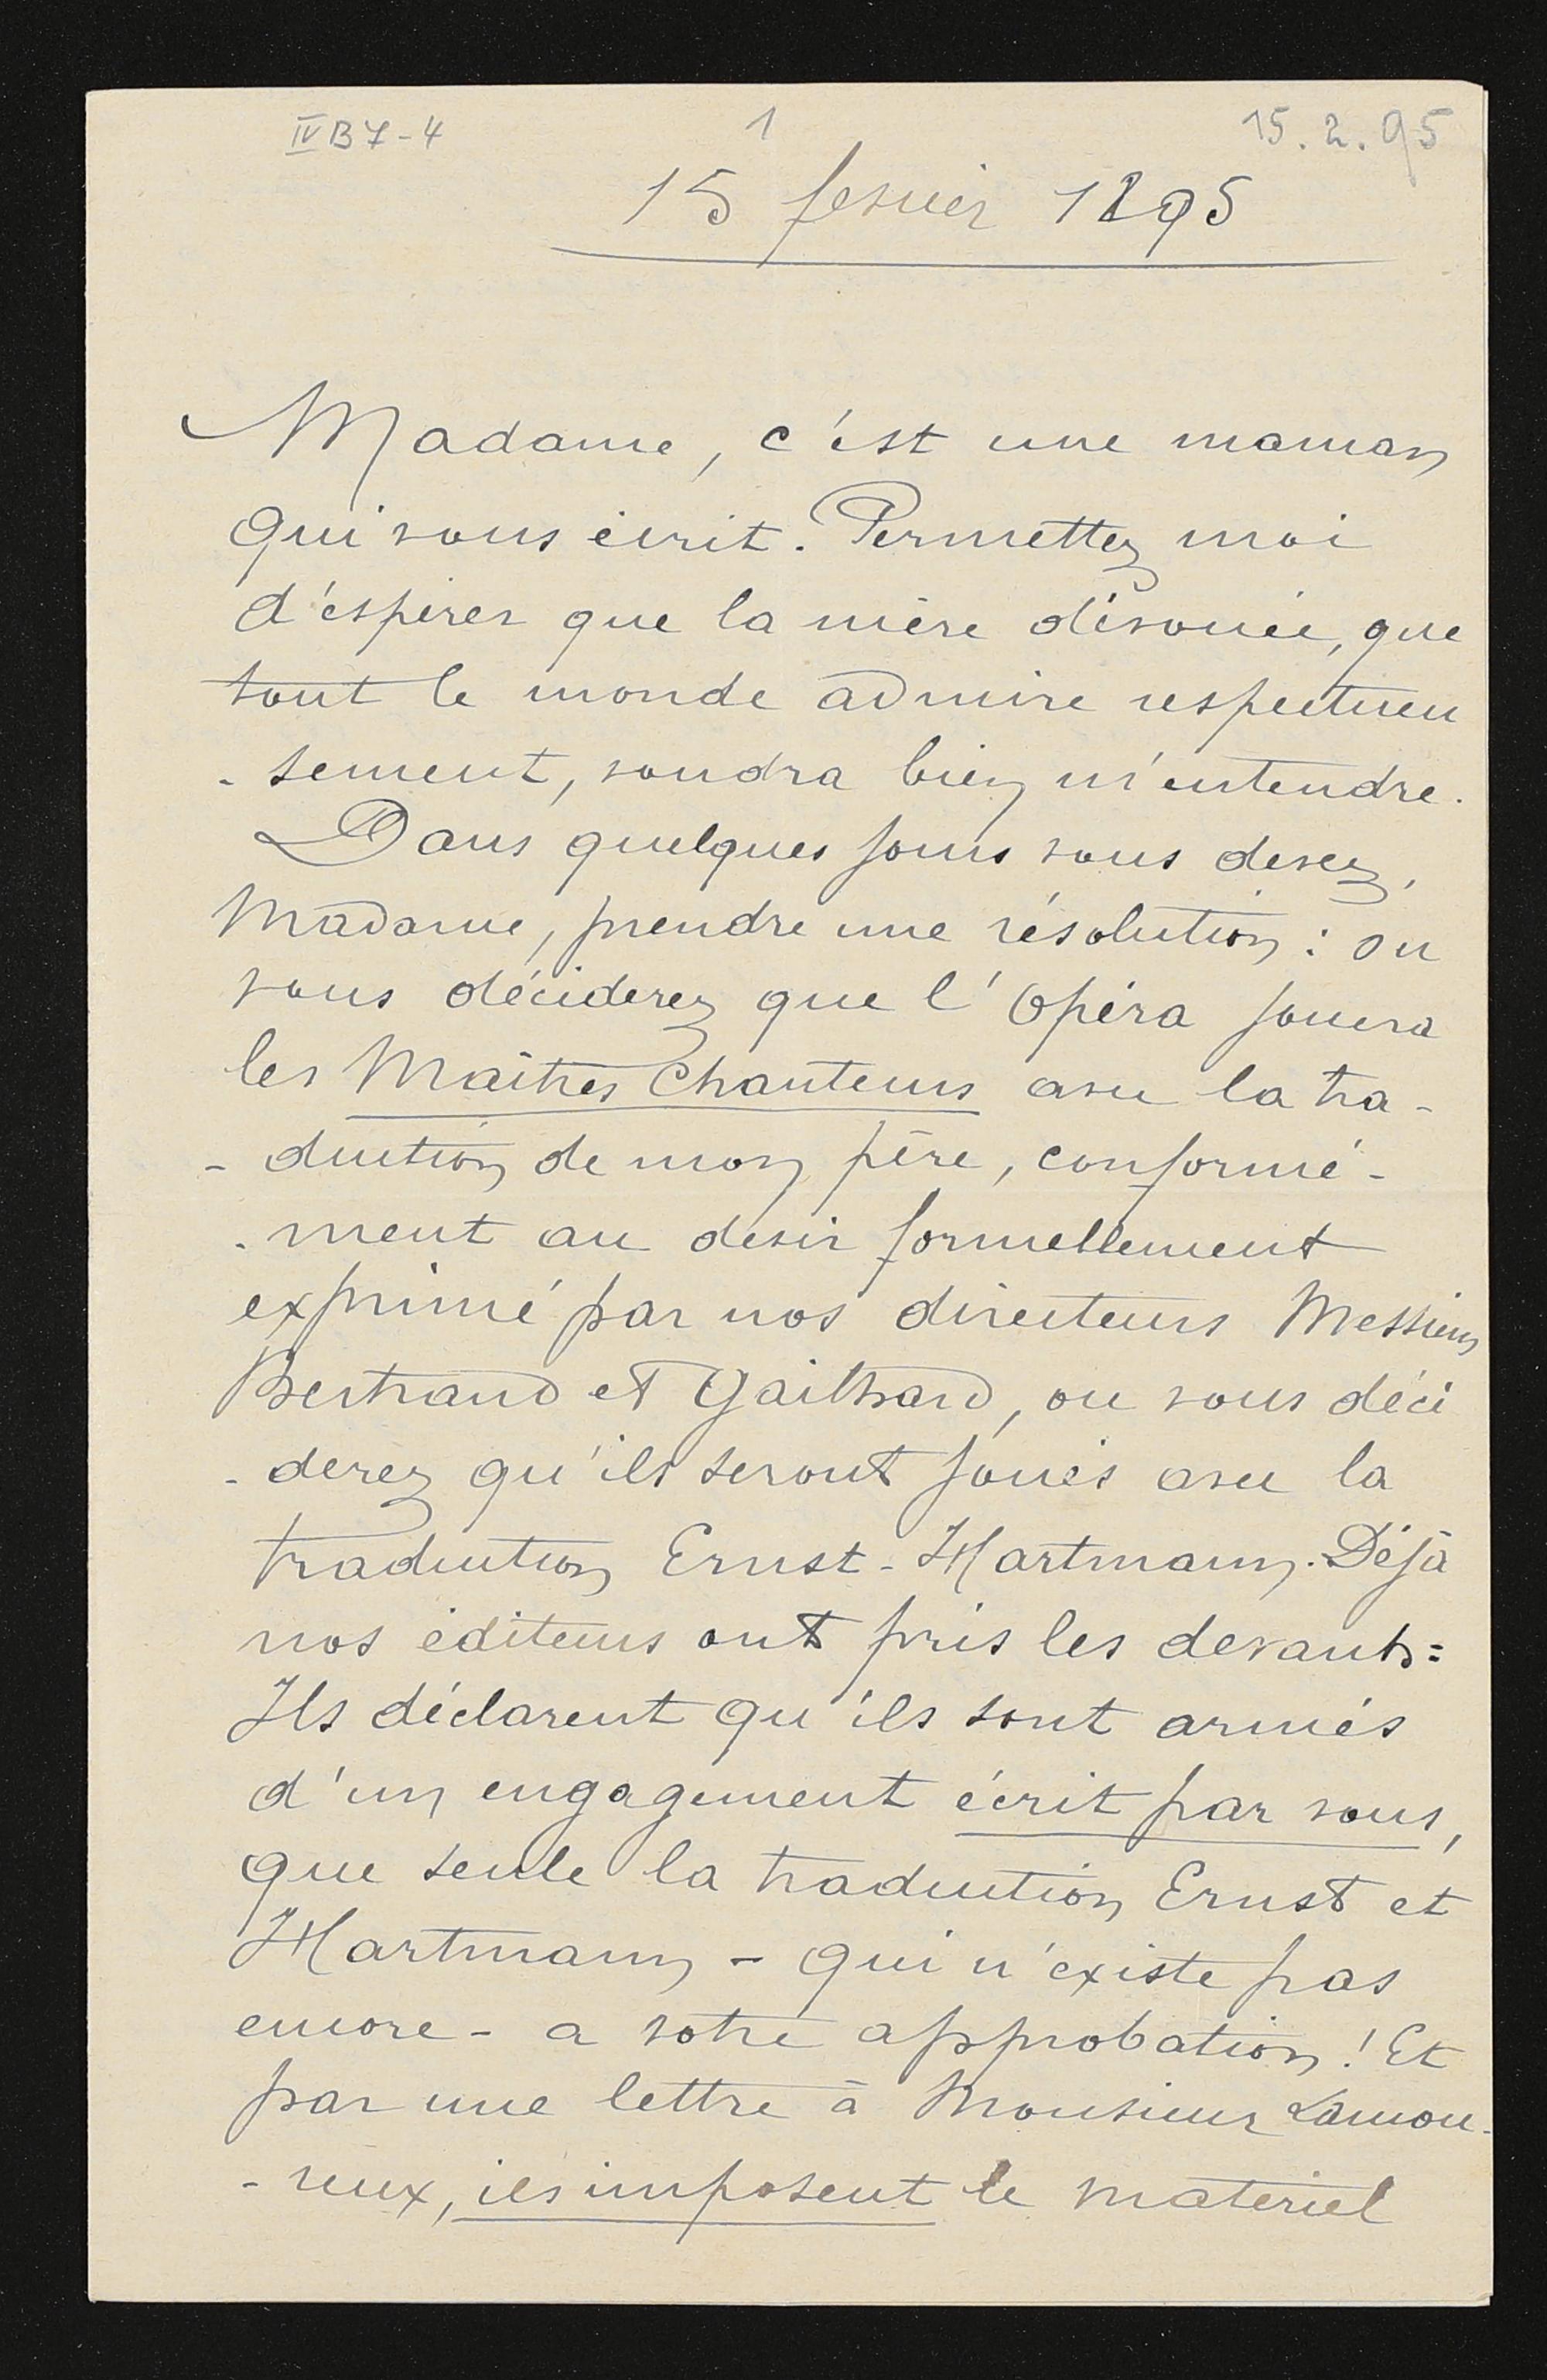 IV B 7-4
1
15.2.95
15 fevrier 1895
Madame, c'est une maman
qui vous écrit. Permettez moi
d'espérer que la mère dévouée, que
tout le monde admire respectueu
- sement, voudra bien m'entendre.
Dans quelques jours vous devez,
Madame, prendre une résolution : ou
vous déciderez que l'Opéra jouera
les Maîtres Chanteurs avec la tra-
- duction de mon père, conformé-
- ment au desir formellement
exprimé par nos directeurs Messieurs
Bertrand et Gailhard, ou vous déci
- derez qu'ils seront joués avec la
traduction Ernst-Hartmann. Déjà
nos éditeurs ont pris les devants :
Ils déclarent qu'ils sont armés
d'un engagement écrit par vous,
que seule la traduction Ernst et
Hartmann - qui n'existe pas
encore - a votre approbation ! Et
par une lettre à Monsieur Lamou-
- reux, ils imposent le matériel